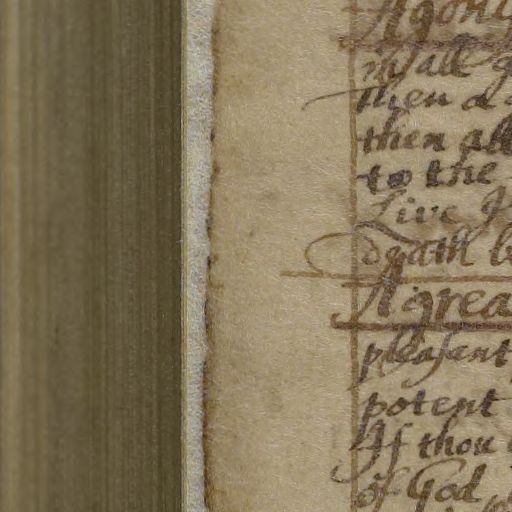 Agony
my all g
then a
then all
to the
Live
death b
A grea
pleasant
potent
If thou
of God